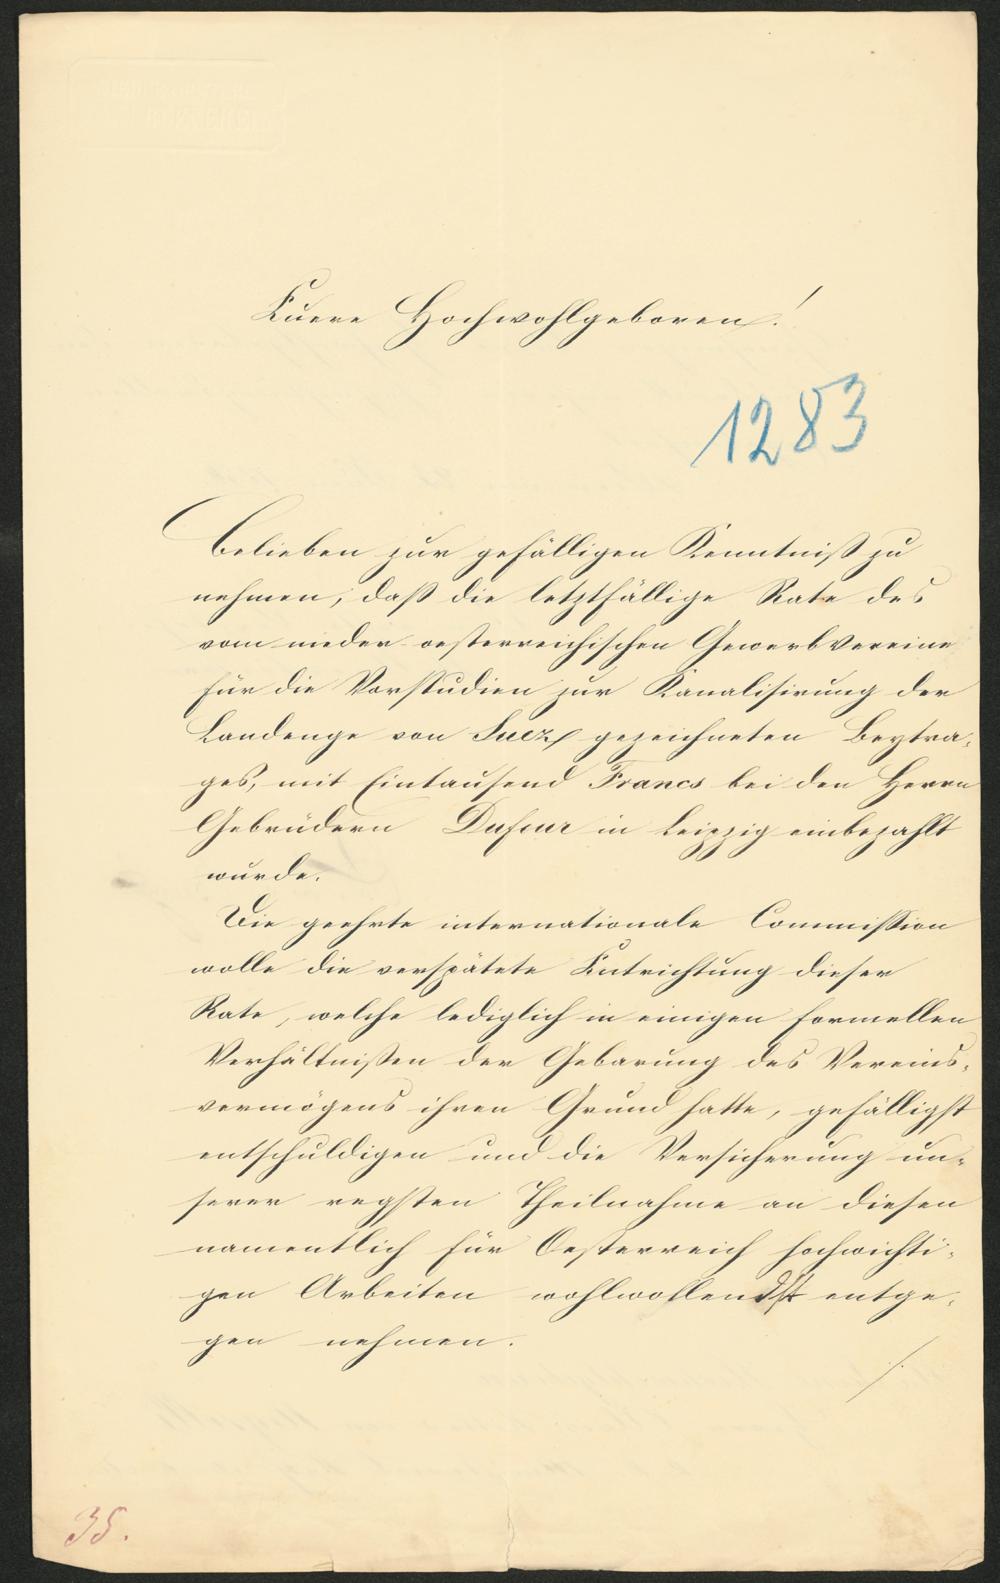 Euere Hochwohlgeboren!
1283
Belieben zur gefälligen Kenntniß zu
nehmen, daß die letztfällige Rate des
vom nieder-oesterreichischen Gewerbvereine
für die Vorstudien zur Kanalisirung der
Landenge von Suez gezeichneten Beytra-
ges, mit Eintausend Francs bei den Herrn
Gebrüdern Dufour in Leipzig einbezahlt
wurde.
Die geehrte internationale Commission
wolle die verspätete Entrichtung dieser
Rate, welche lediglich in einigen formellen
Verhältnißen der Gebarung des Vereins-
vermögens ihren Grund hatte, gefälligst
entschuldigen und die Versicherung un-
serer regsten Theilnahme an diesen
namentlich für Oesterreich hochwichti-
gen Arbeiten wohlwollendst entge-
gen nehmen.
./.
35.